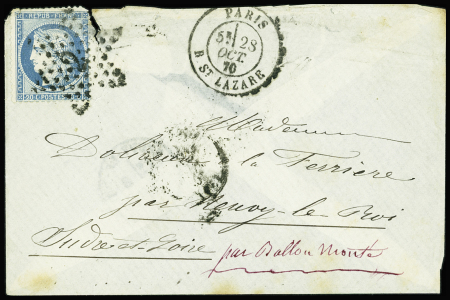 REPUB. FRANC.
20 C. POSTES 20 C.
PARIS
5E 28
OCT.
70
R. ST LAZARE
Madame
la Ferrière
par Neuvy-le-Roi
Indre-et-Loire
par Ballon Monté